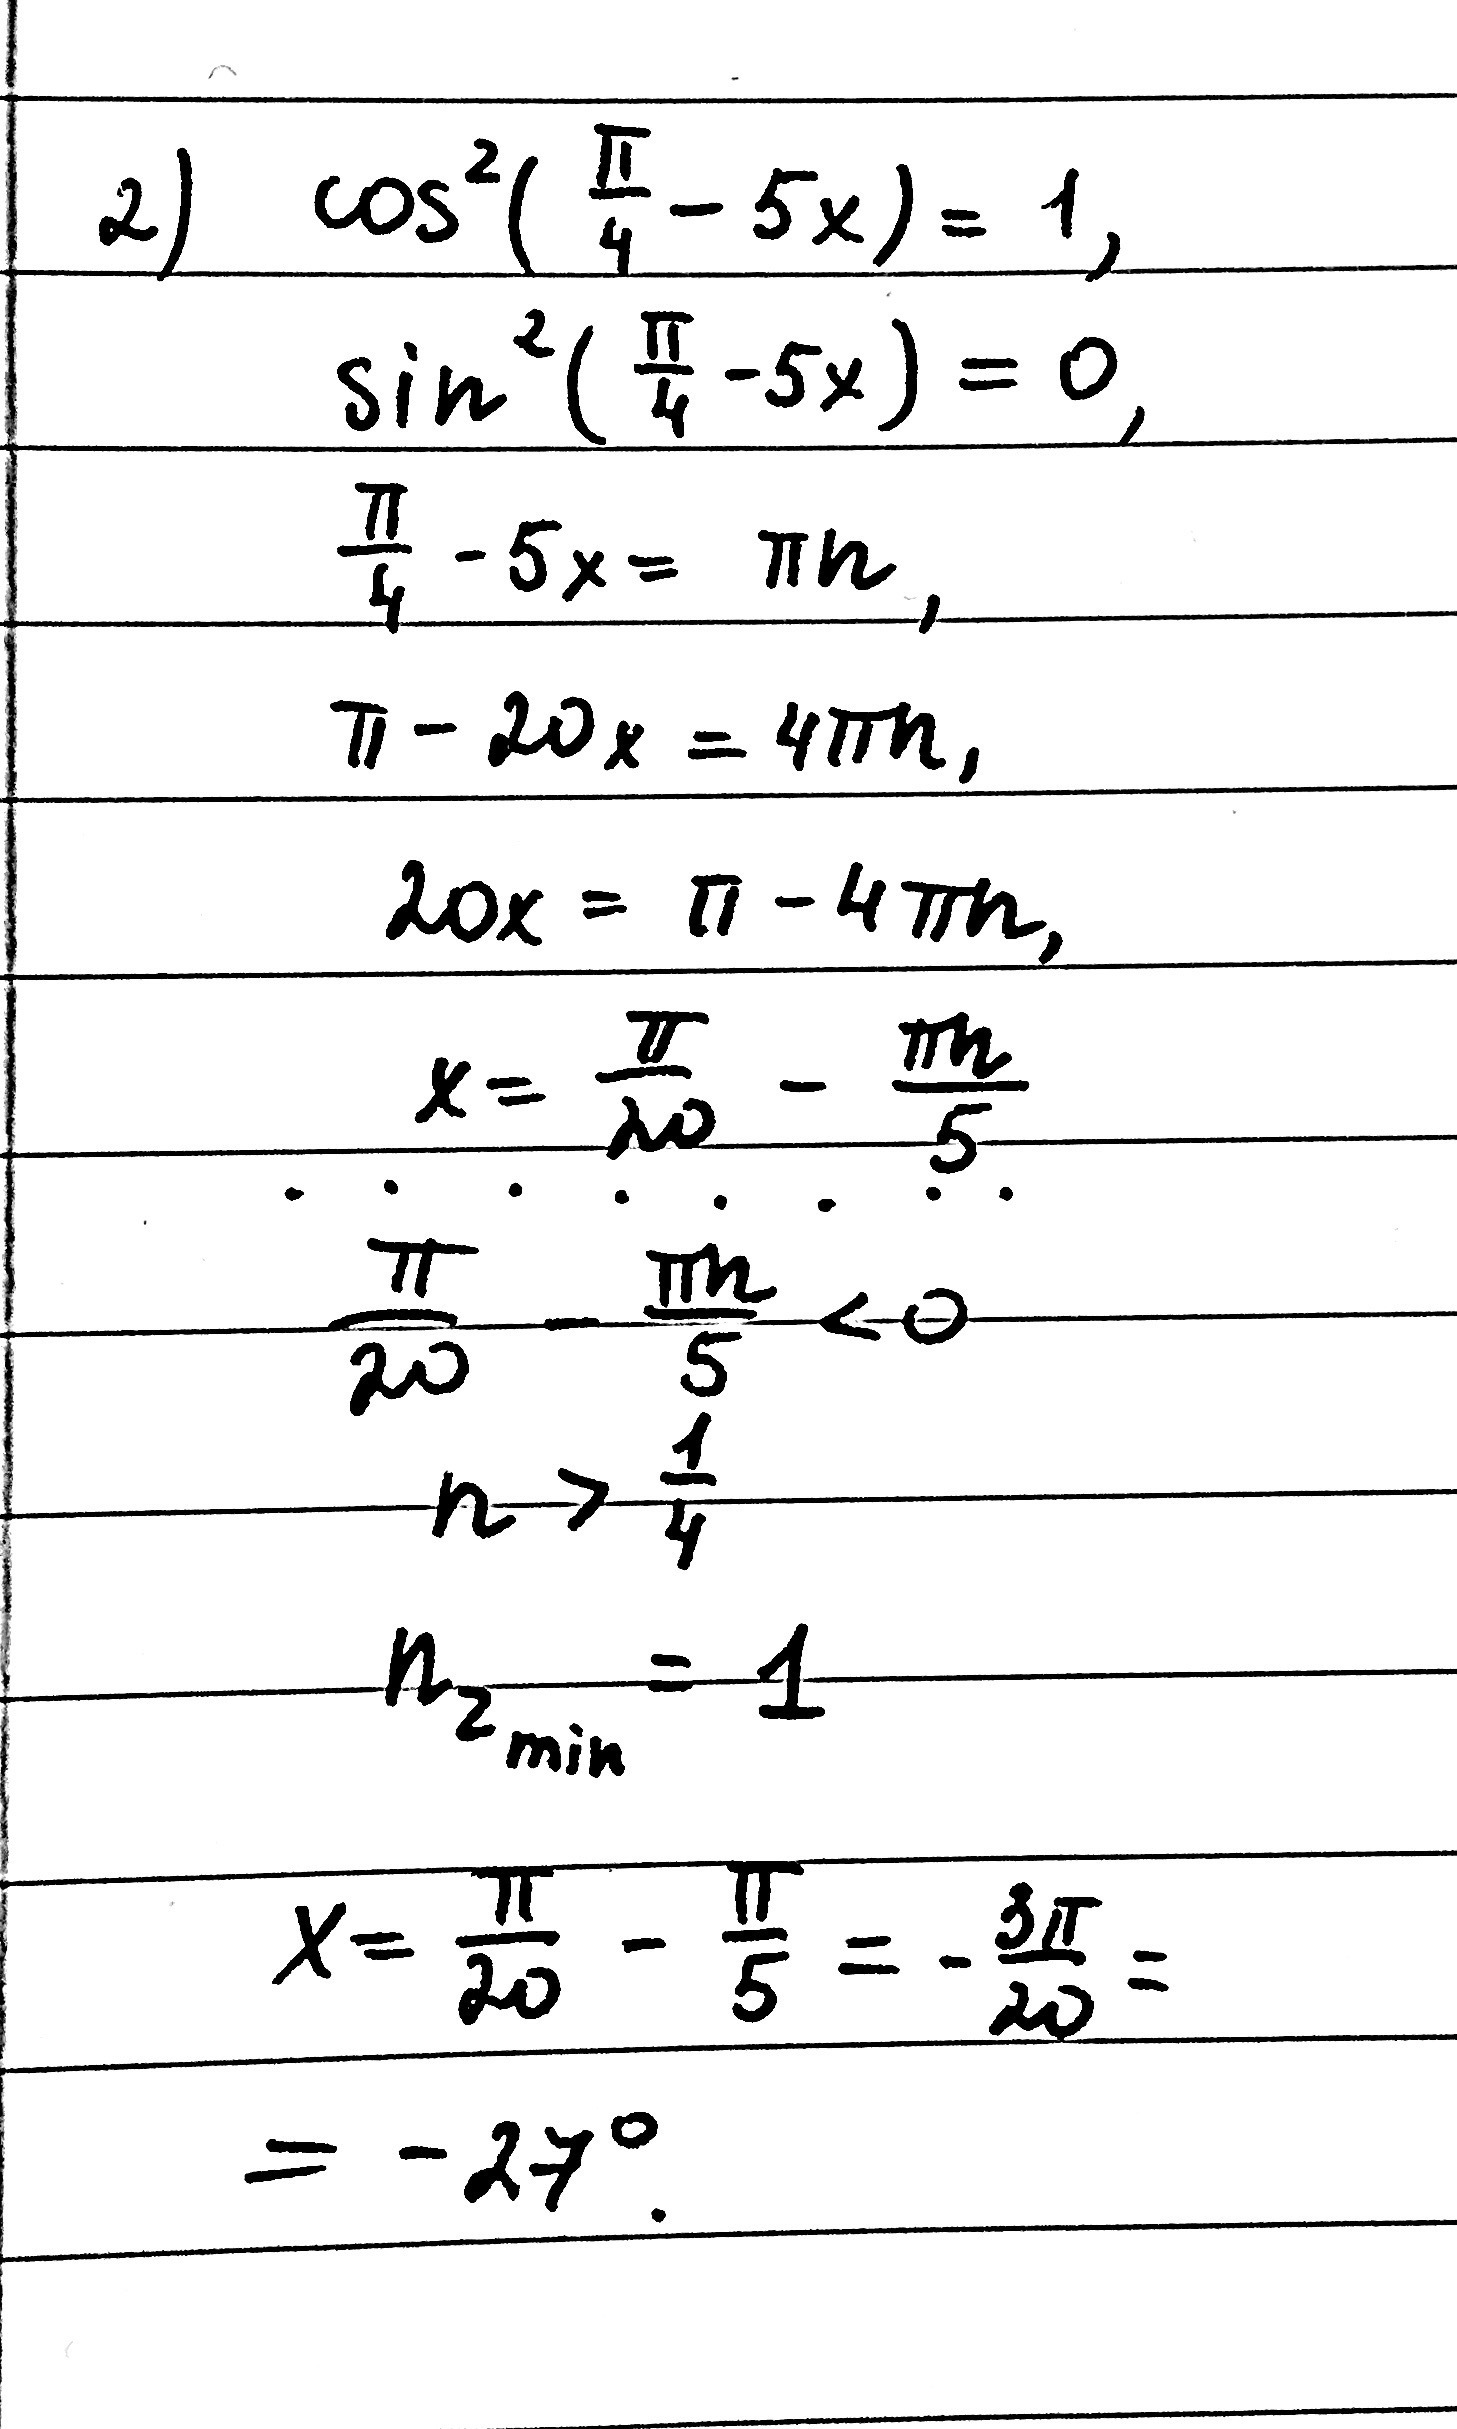 2) cos²(π/4 - 5x) = 1,
sin²(π/4 - 5x) = 0,
π/4 - 5x = πn,
π - 20x = 4πn,
20x = π - 4πn,
x = π/20 - πn/5
. . . . . . . .
π/20 - πn/5 < 0
n > 1/4
n₂ min = 1
x = π/20 - π/5 = - 3π/20 =
= -27°.